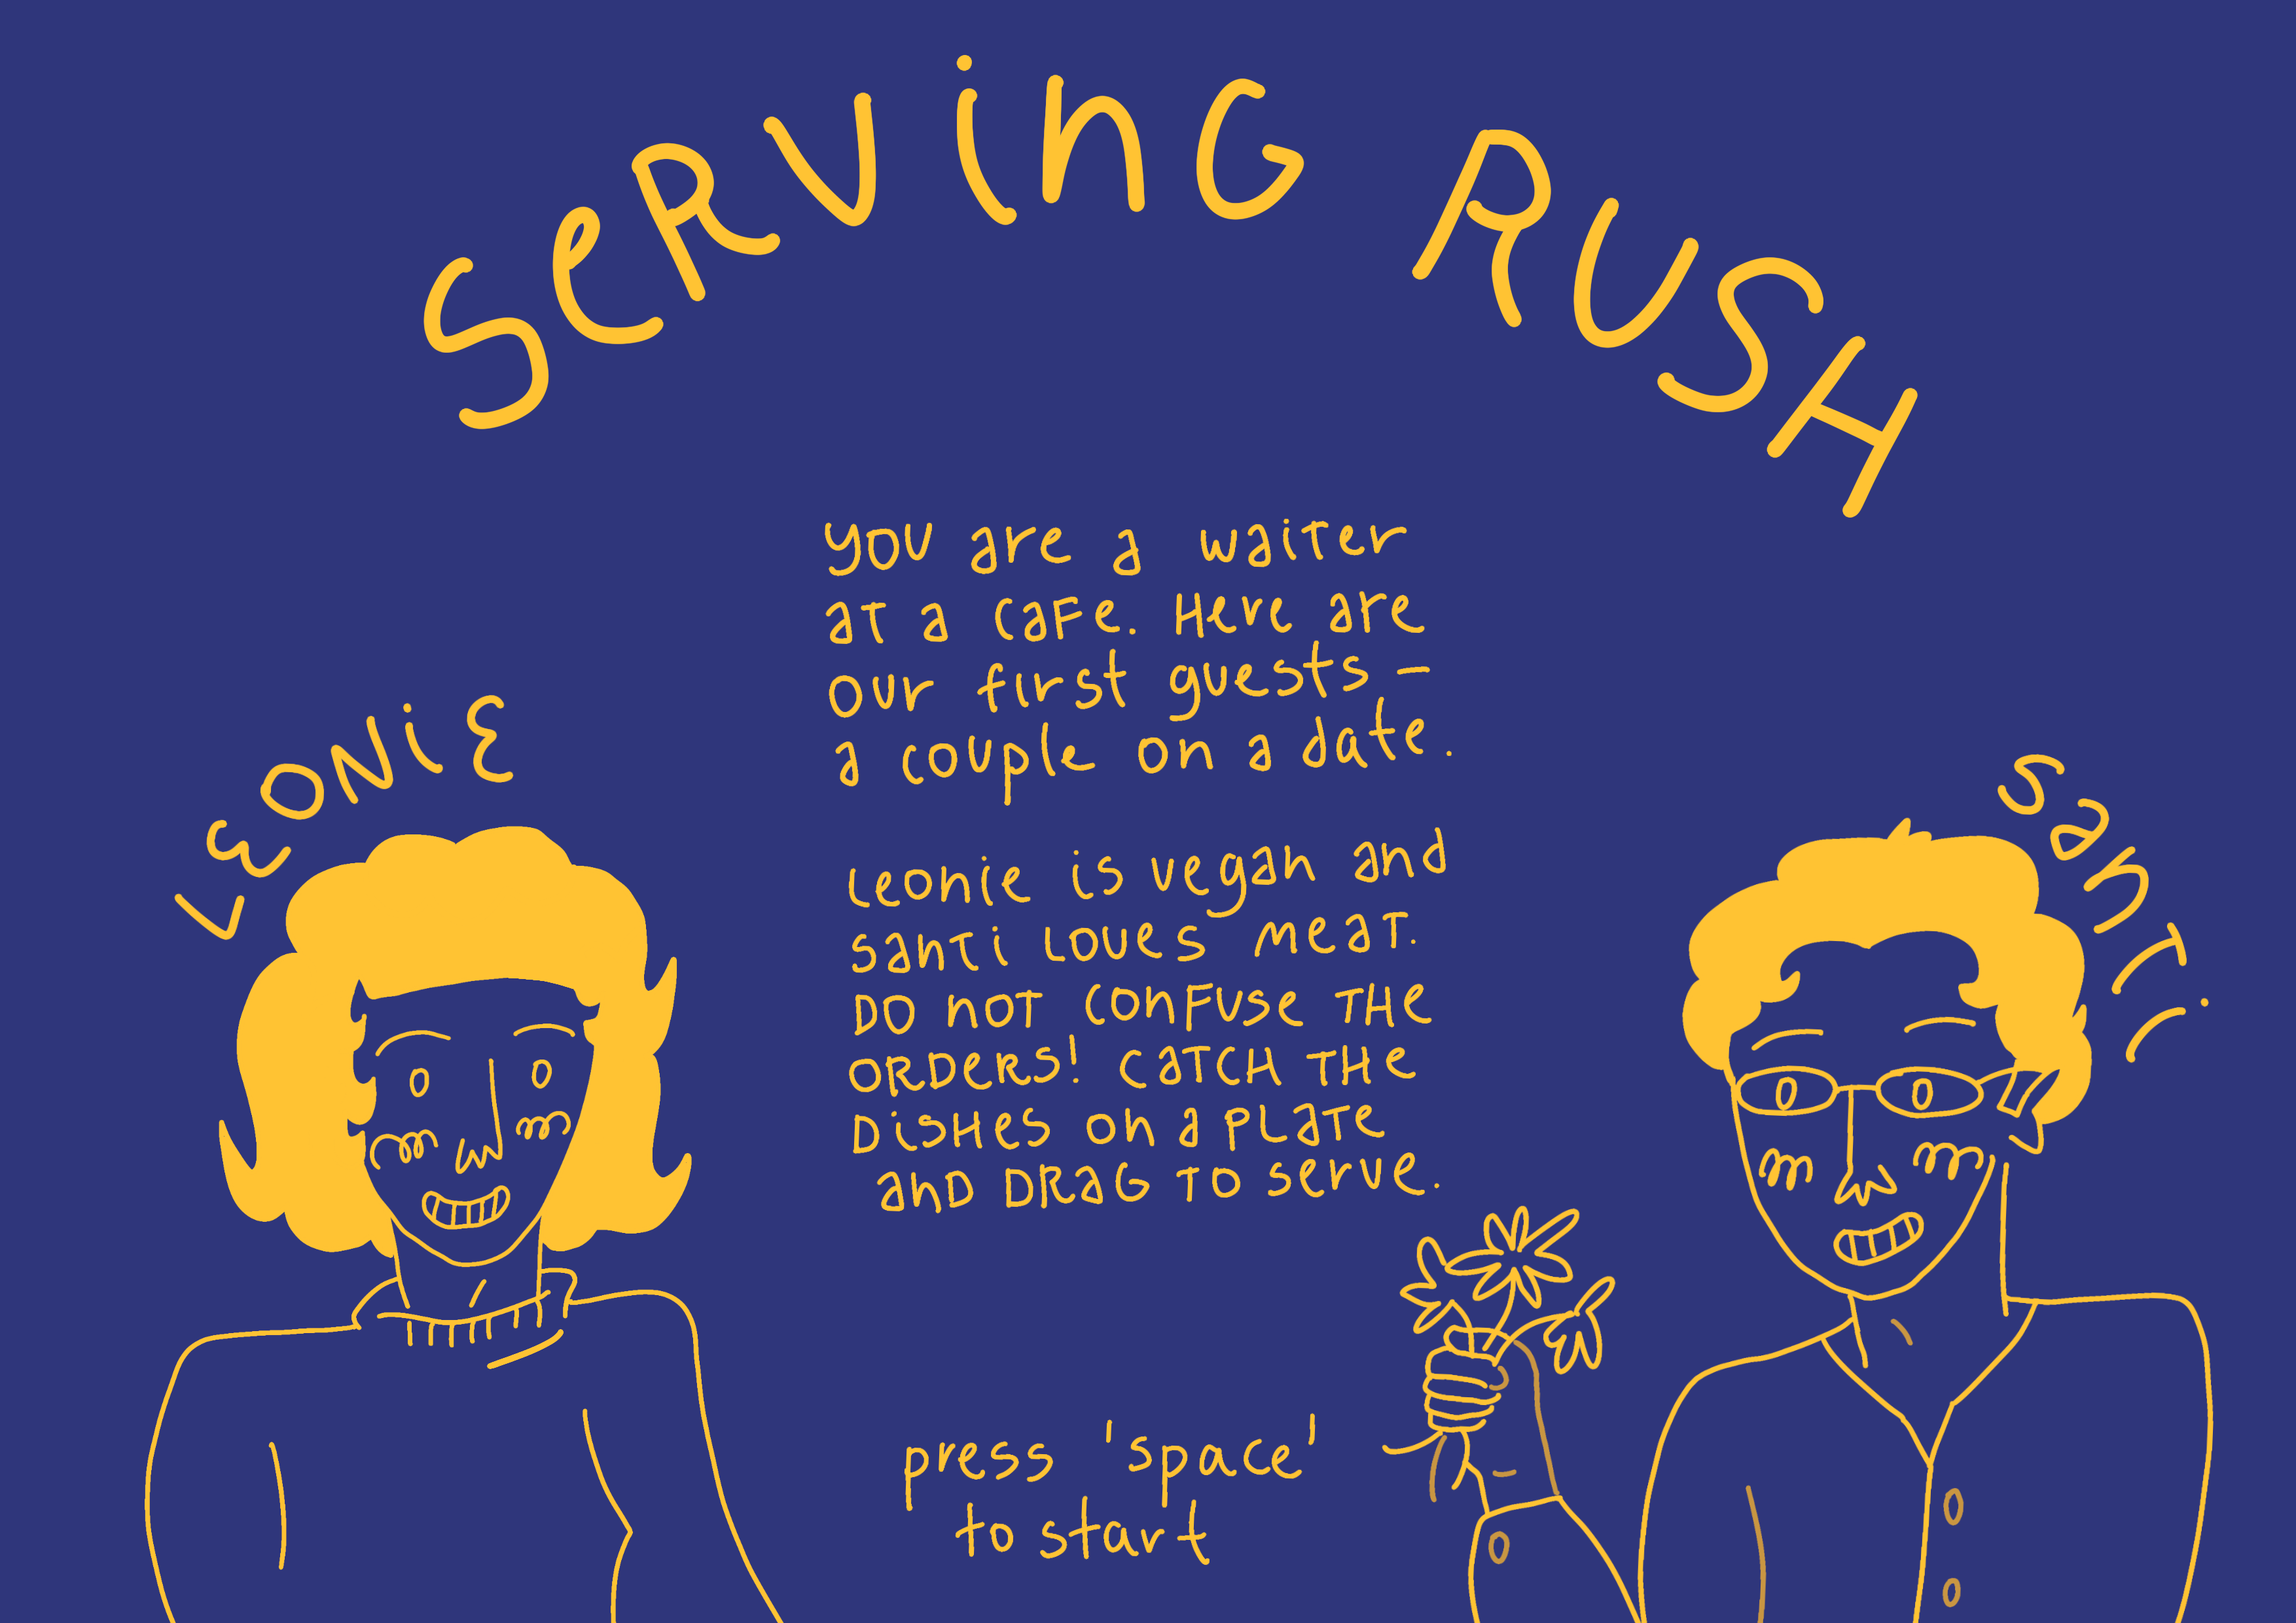 SeRViNG RUSH
LEONiE
santi
you are a waiter
at a cafe. Here are
our first guests –
a couple on a date.
Leonie is vegan and
santi loves meat.
DO NOT CONFUSE THE
ORDERS! CATCH THE
DISHES ON A PLATE
AND DRAG TO serve.
press 'space'
to start